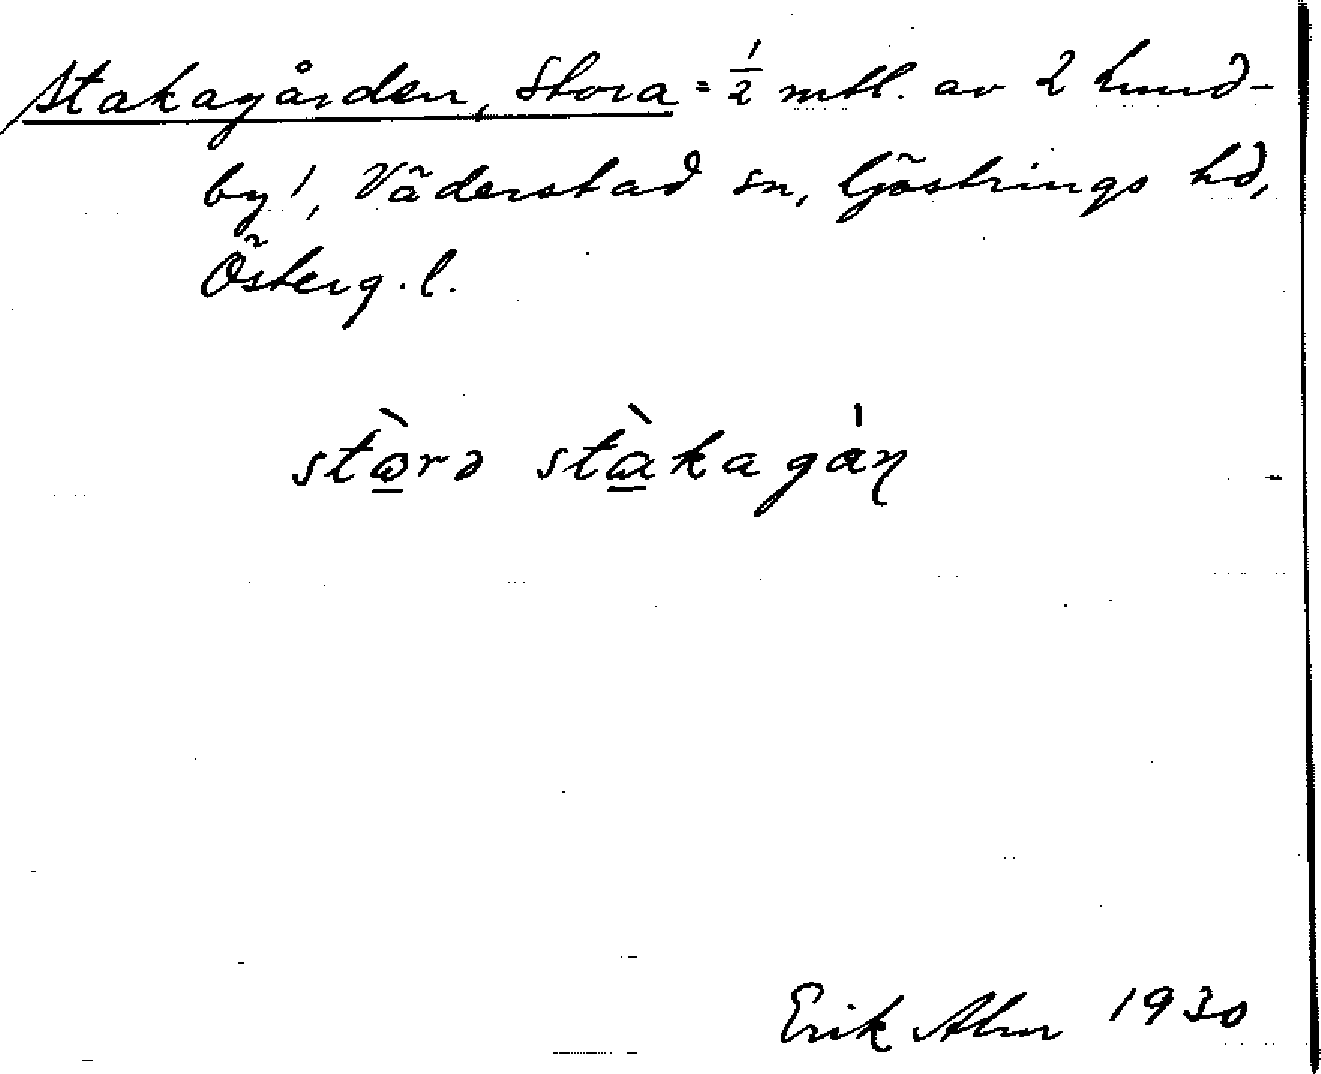 Stakagården, Stora = 1/2 mtl. av 2 Lund-
by 1, Väderstad sn, Göstrings hd,
Österg. l.
stòrə stàkagán
Erik Abrn 1930